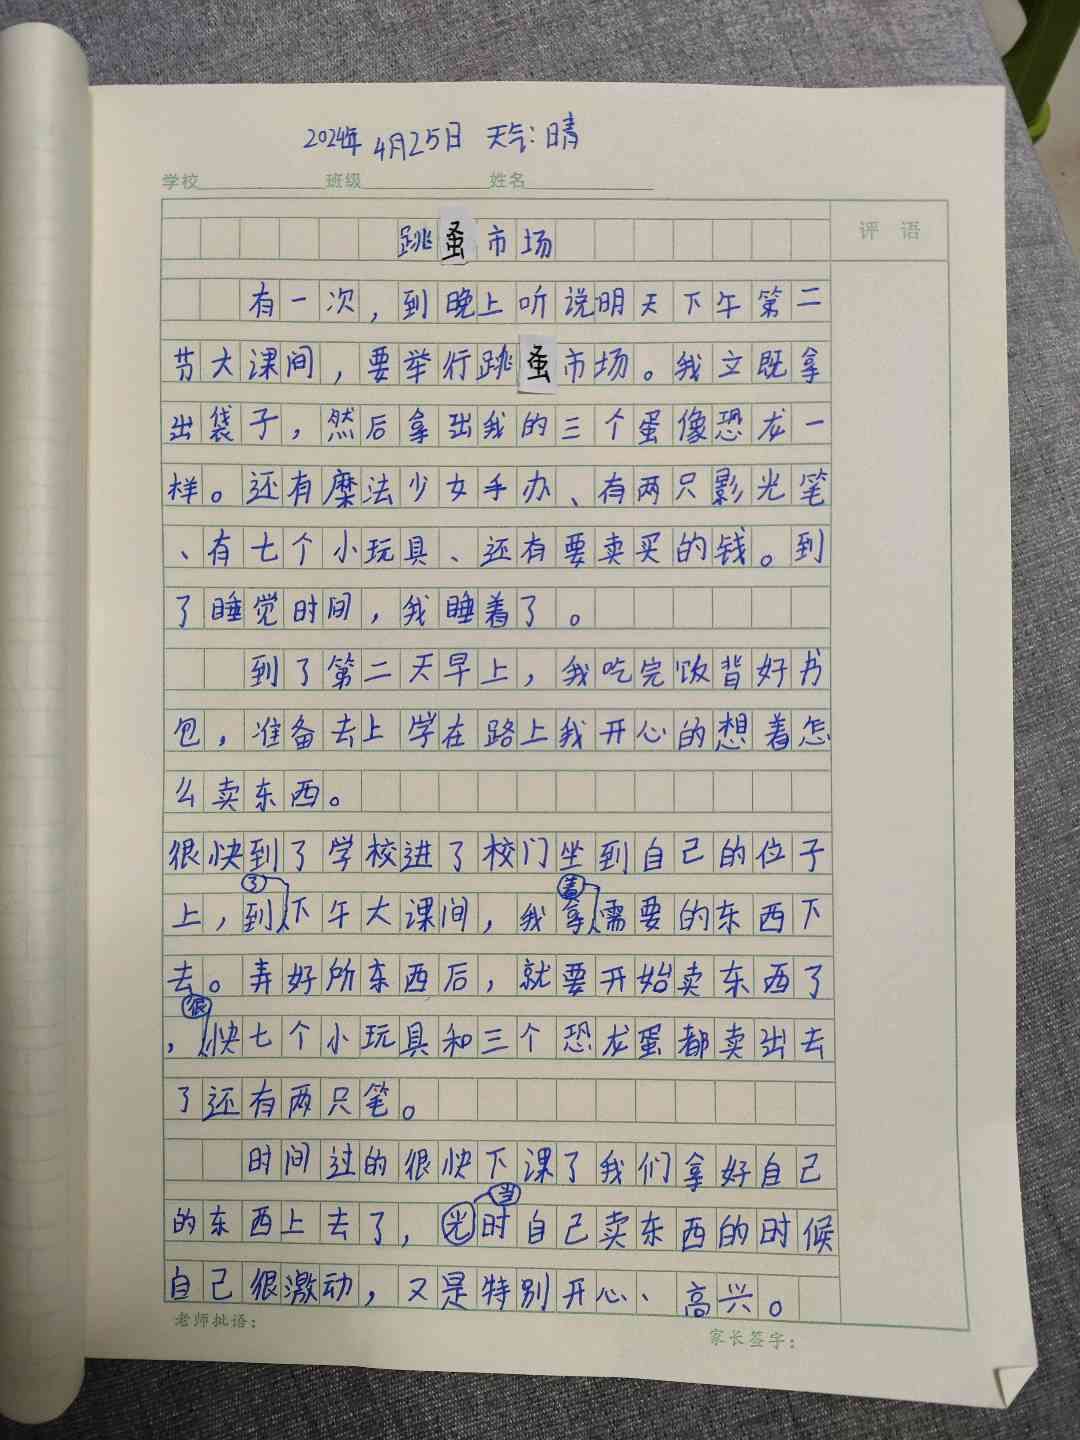 2024年 4月25日 天气:晴
学校 班级 姓名
评语
跳蚤市场
有一次,到晚上听说明天下午第二
节大课间,要举行跳蚤市场。我立既拿
出袋子,然后拿出我的三个蛋像恐龙一
样。还有糜法少女手办、有两只影光笔
、有七个小玩具、还有要卖买的钱。到
了睡觉时间,我睡着了。
到了第二天早上,我吃完饭背好书
包,准备去上学在路上我开心的想着怎
么卖东西。
很快到了学校进了校门坐到自己的位子
上,到了下午大课间,我拿着需要的东西下
去。弄好所东西后,就要开始卖东西了
,很快七个小玩具和三个恐龙蛋都卖出去
了还有两只笔。
时间过的很快下课了我们拿好自己
的东西上去了,当时自己卖东西的时候
自己很激动,又是特别开心、高兴。
老师批语:
家长签字: